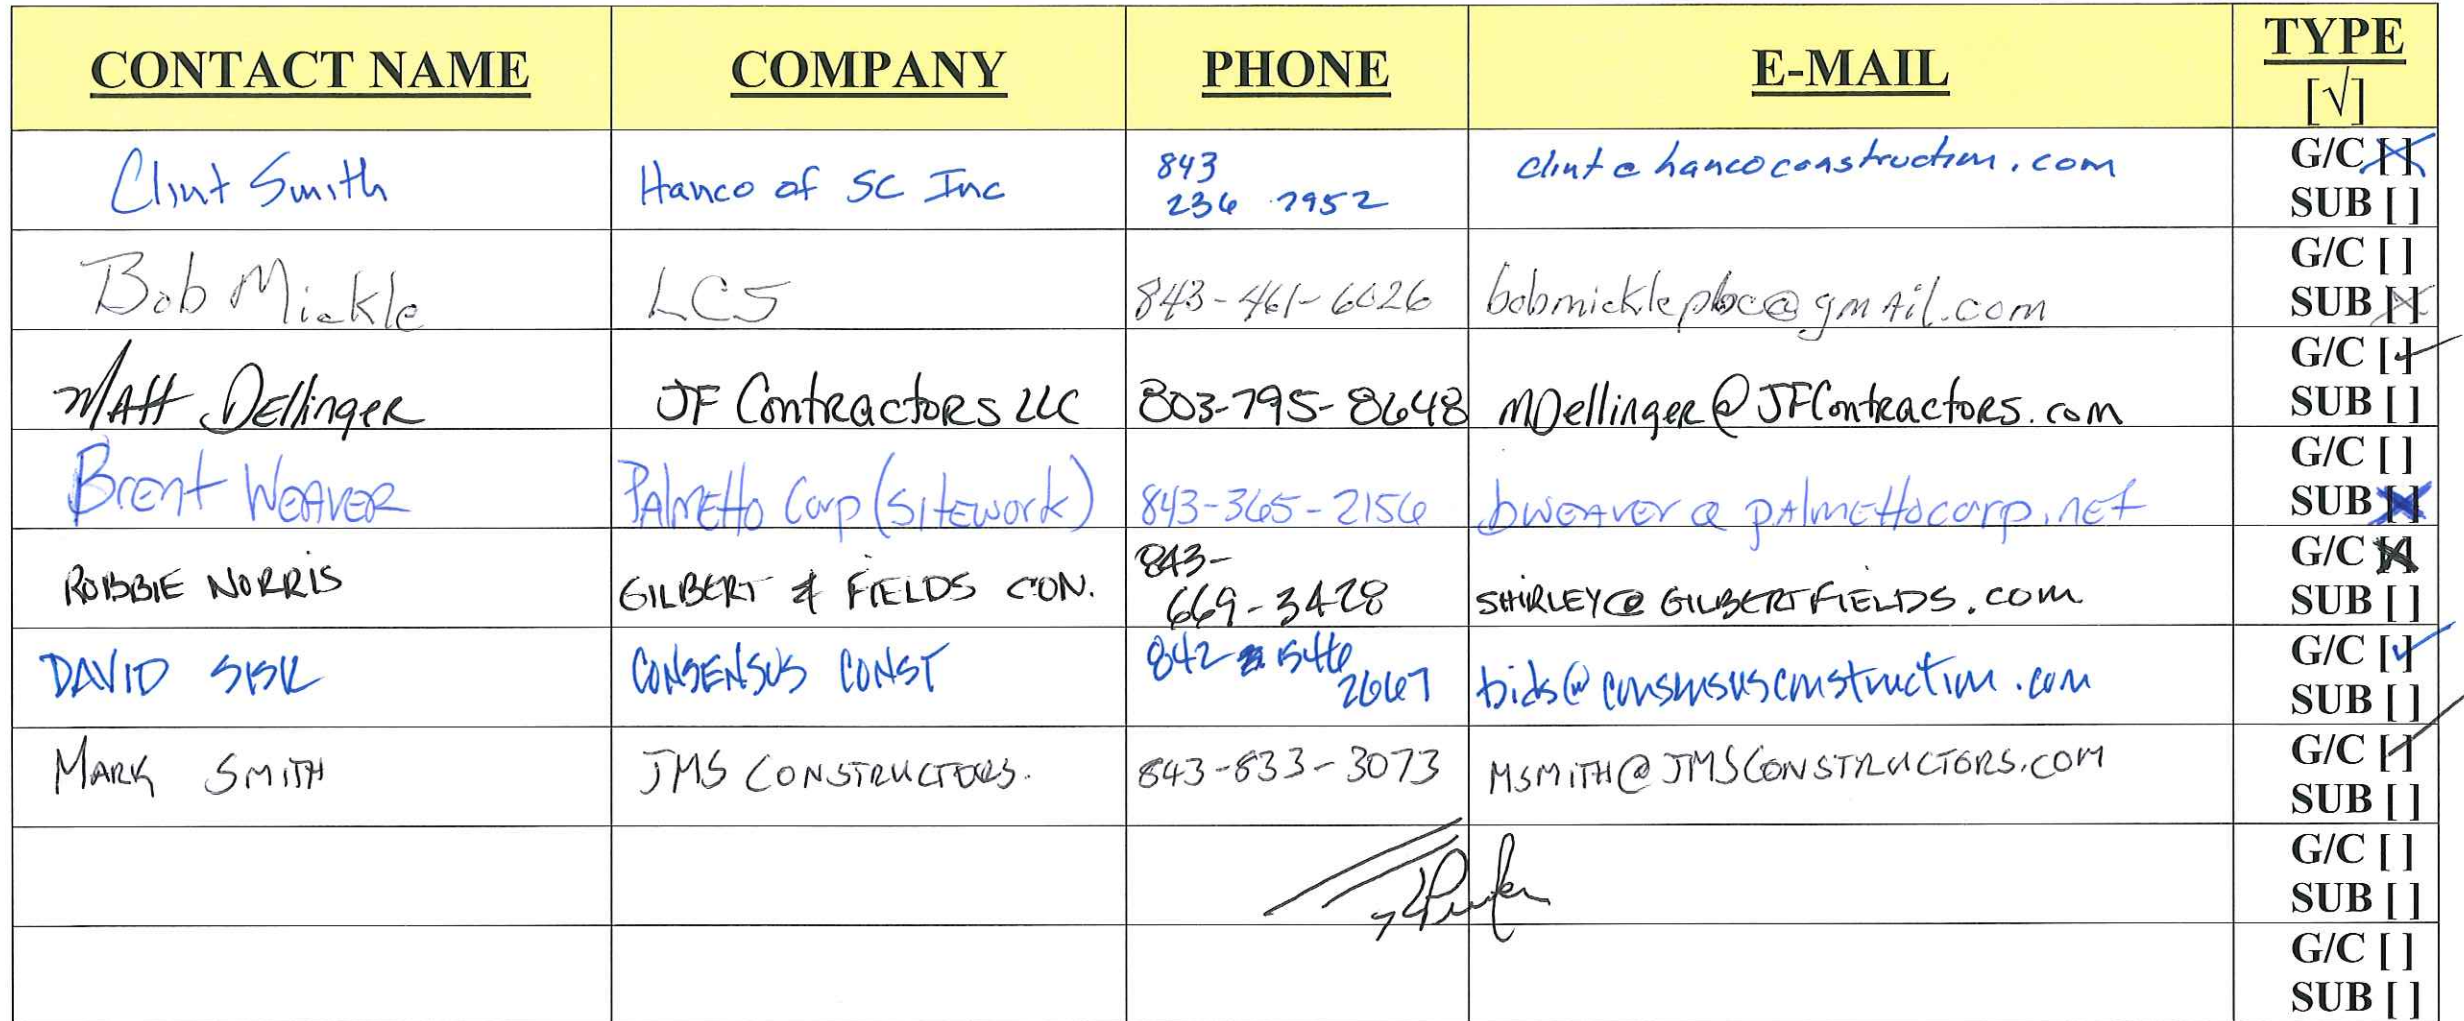 CONTACT NAME COMPANY PHONE E-MAIL TYPE
[√]
Clint Smith Hanco of SC Inc 843 clint@hancoconstruction.com G/C [X]
236 7952 SUB [ ]
G/C [ ]
Bob Mickle LCS 843-461-6026 bobmicklepbc@gmail.com SUB [X]
G/C [✓]
Matt Dellinger JF Contractors LLC 803-795-8648 MDellinger@JFContractors.com SUB [ ]
G/C [ ]
Brent Weaver Palmetto Corp (Sitework) 843-365-2156 bweaver@palmettocorp.net SUB [X]
843- G/C [X]
ROBBIE NORRIS GILBERT & FIELDS CON. 669-3428 SHIRLEY@GILBERTFIELDS.COM SUB [ ]
DAVID SISK CONSENSUS CONST 842 546 G/C [✓]
2667 bids@consensusconstruction.com SUB [ ]
MARK SMITH JMS CONSTRUCTORS. 843-833-3073 MSMITH@JMSCONSTRUCTORS.COM G/C [✓]
SUB [ ]
G/C [ ]
SUB [ ]
G/C [ ]
SUB [ ]